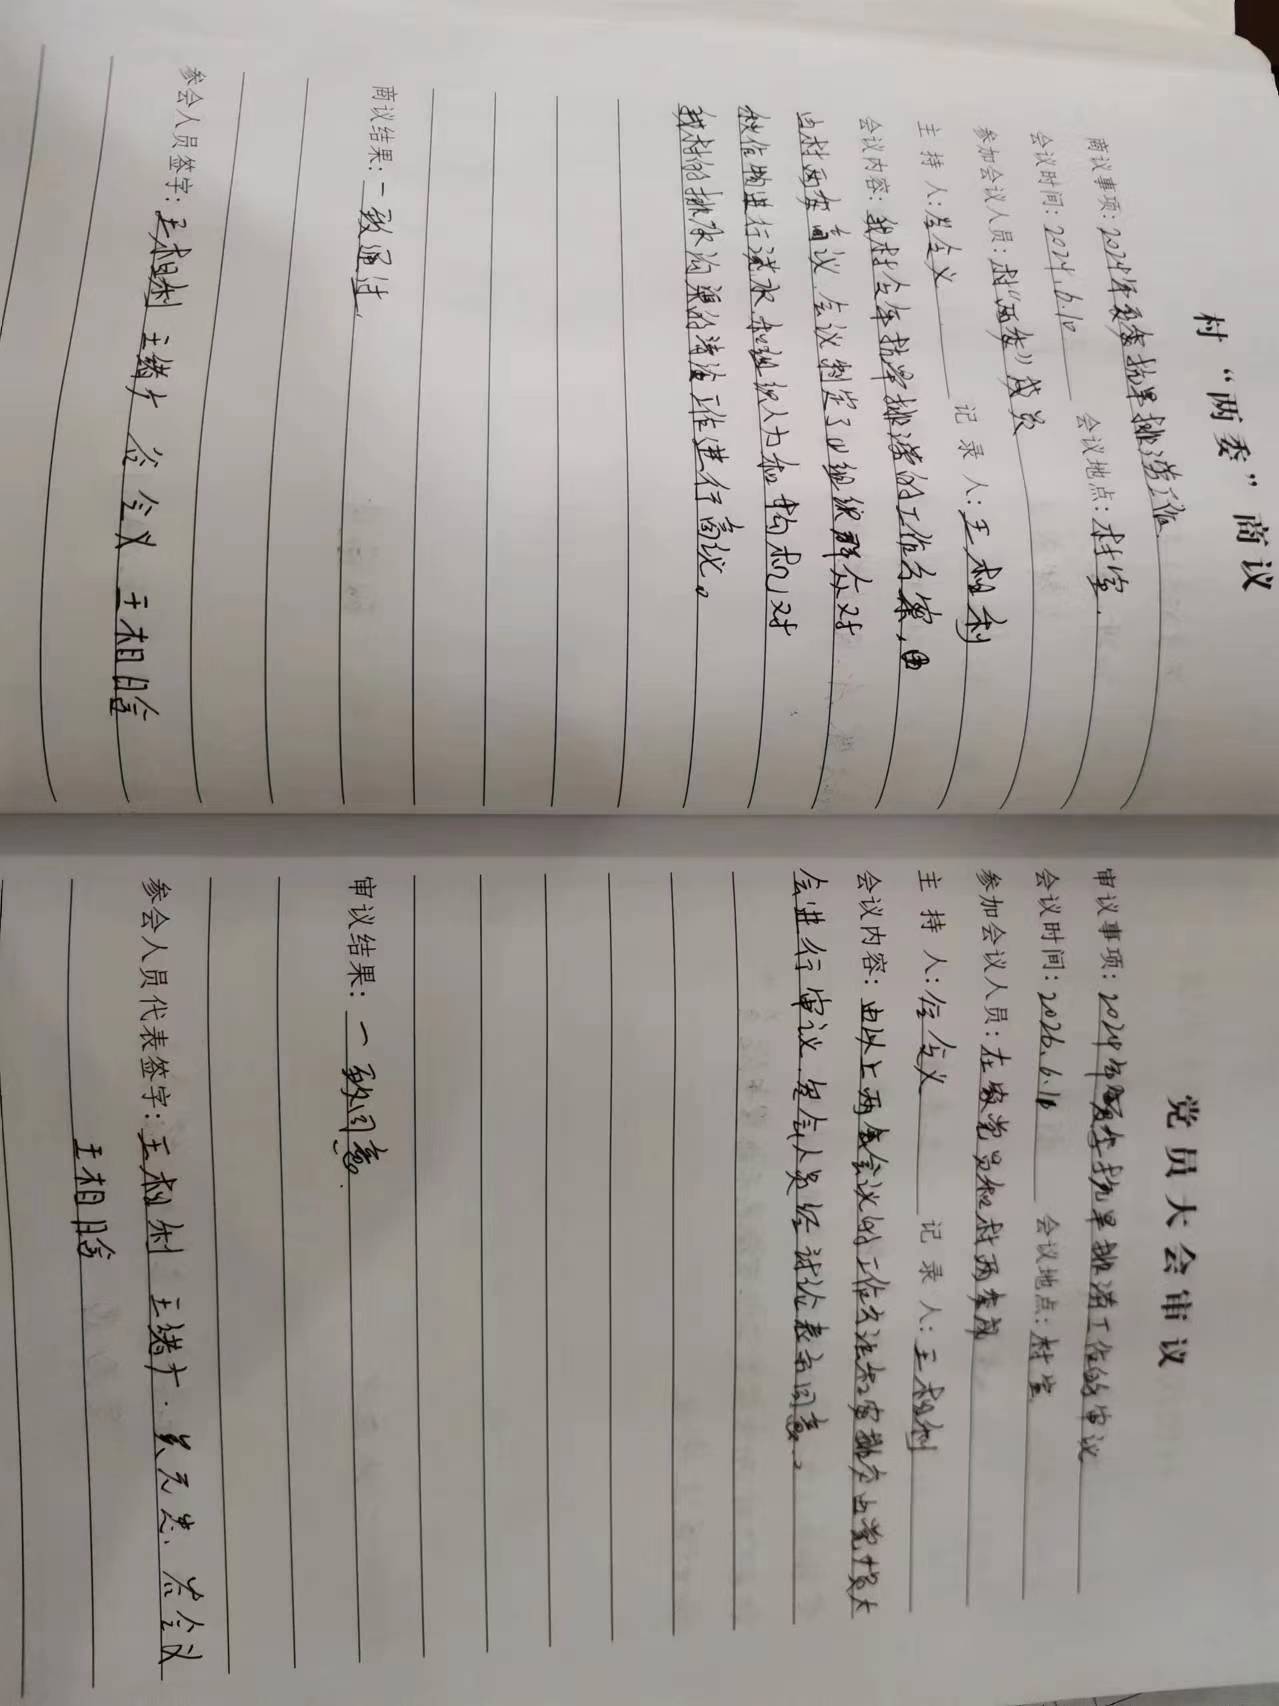 村“两委”商议
商议事项：2024年夏季抗旱排涝工作
会议时间：2024.6.10 会议地点：村室
参加会议人员：村“两委”成员
主 持 人：会义 记 录 人：王相利
会议内容：我村全年抗旱排涝的工作方案，由
由村两委商议 会议制定了以组织群众对
秋作物进行浇水 和组织人力和钩机对
我村的排水沟渠的清淤工作进行商议。
商议结果：一致通过
参会人员签字：王相利 王绪广 会义 王相
党员大会审议
审议事项：2024年夏季抗旱排涝工作的审议
会议时间：2026.6.10 会议地点：村室
参加会议人员：在家党员和村两委成
主 持 人：会义 记 录 人：王相利
会议内容：由以上两会会议的工作方法和安排 由党员大
会进行审议 参会人员经讨论表示同意。
审议结果：一致同意
参会人员代表签字：王相利 王绪广 元 会议
王相